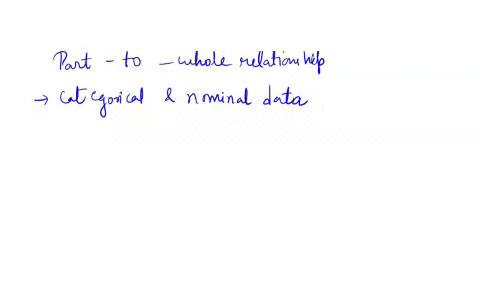 Part - to - whole relationship
→ categorical & nominal data